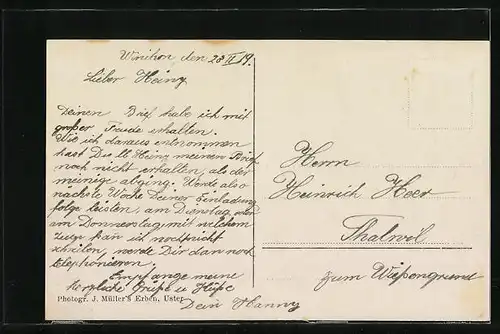 Winikon den 20 II 19.
Lieber Heinz
Deinen Brief habe ich mit
großer Freude erhalten.
Wie ich daraus entnommen
hast Du ll Heinz meinen Brief
noch nicht erhalten, als der
meinige abging. Werde also
nächste Woche Deiner Einladung
folge leisten, am Dienstag oder
am Donnerstag, mit welchem
Zuge kan ich noch nicht
schreiben, werde Dir dan noch
telephonieren.
Empfange meine
herzliche Grüße u Küße
Dein Hanny
Photogr. J. Müller's Erben, Uster
Herrn
Heinrich Heer
Thalwil
zum Wiesengrund